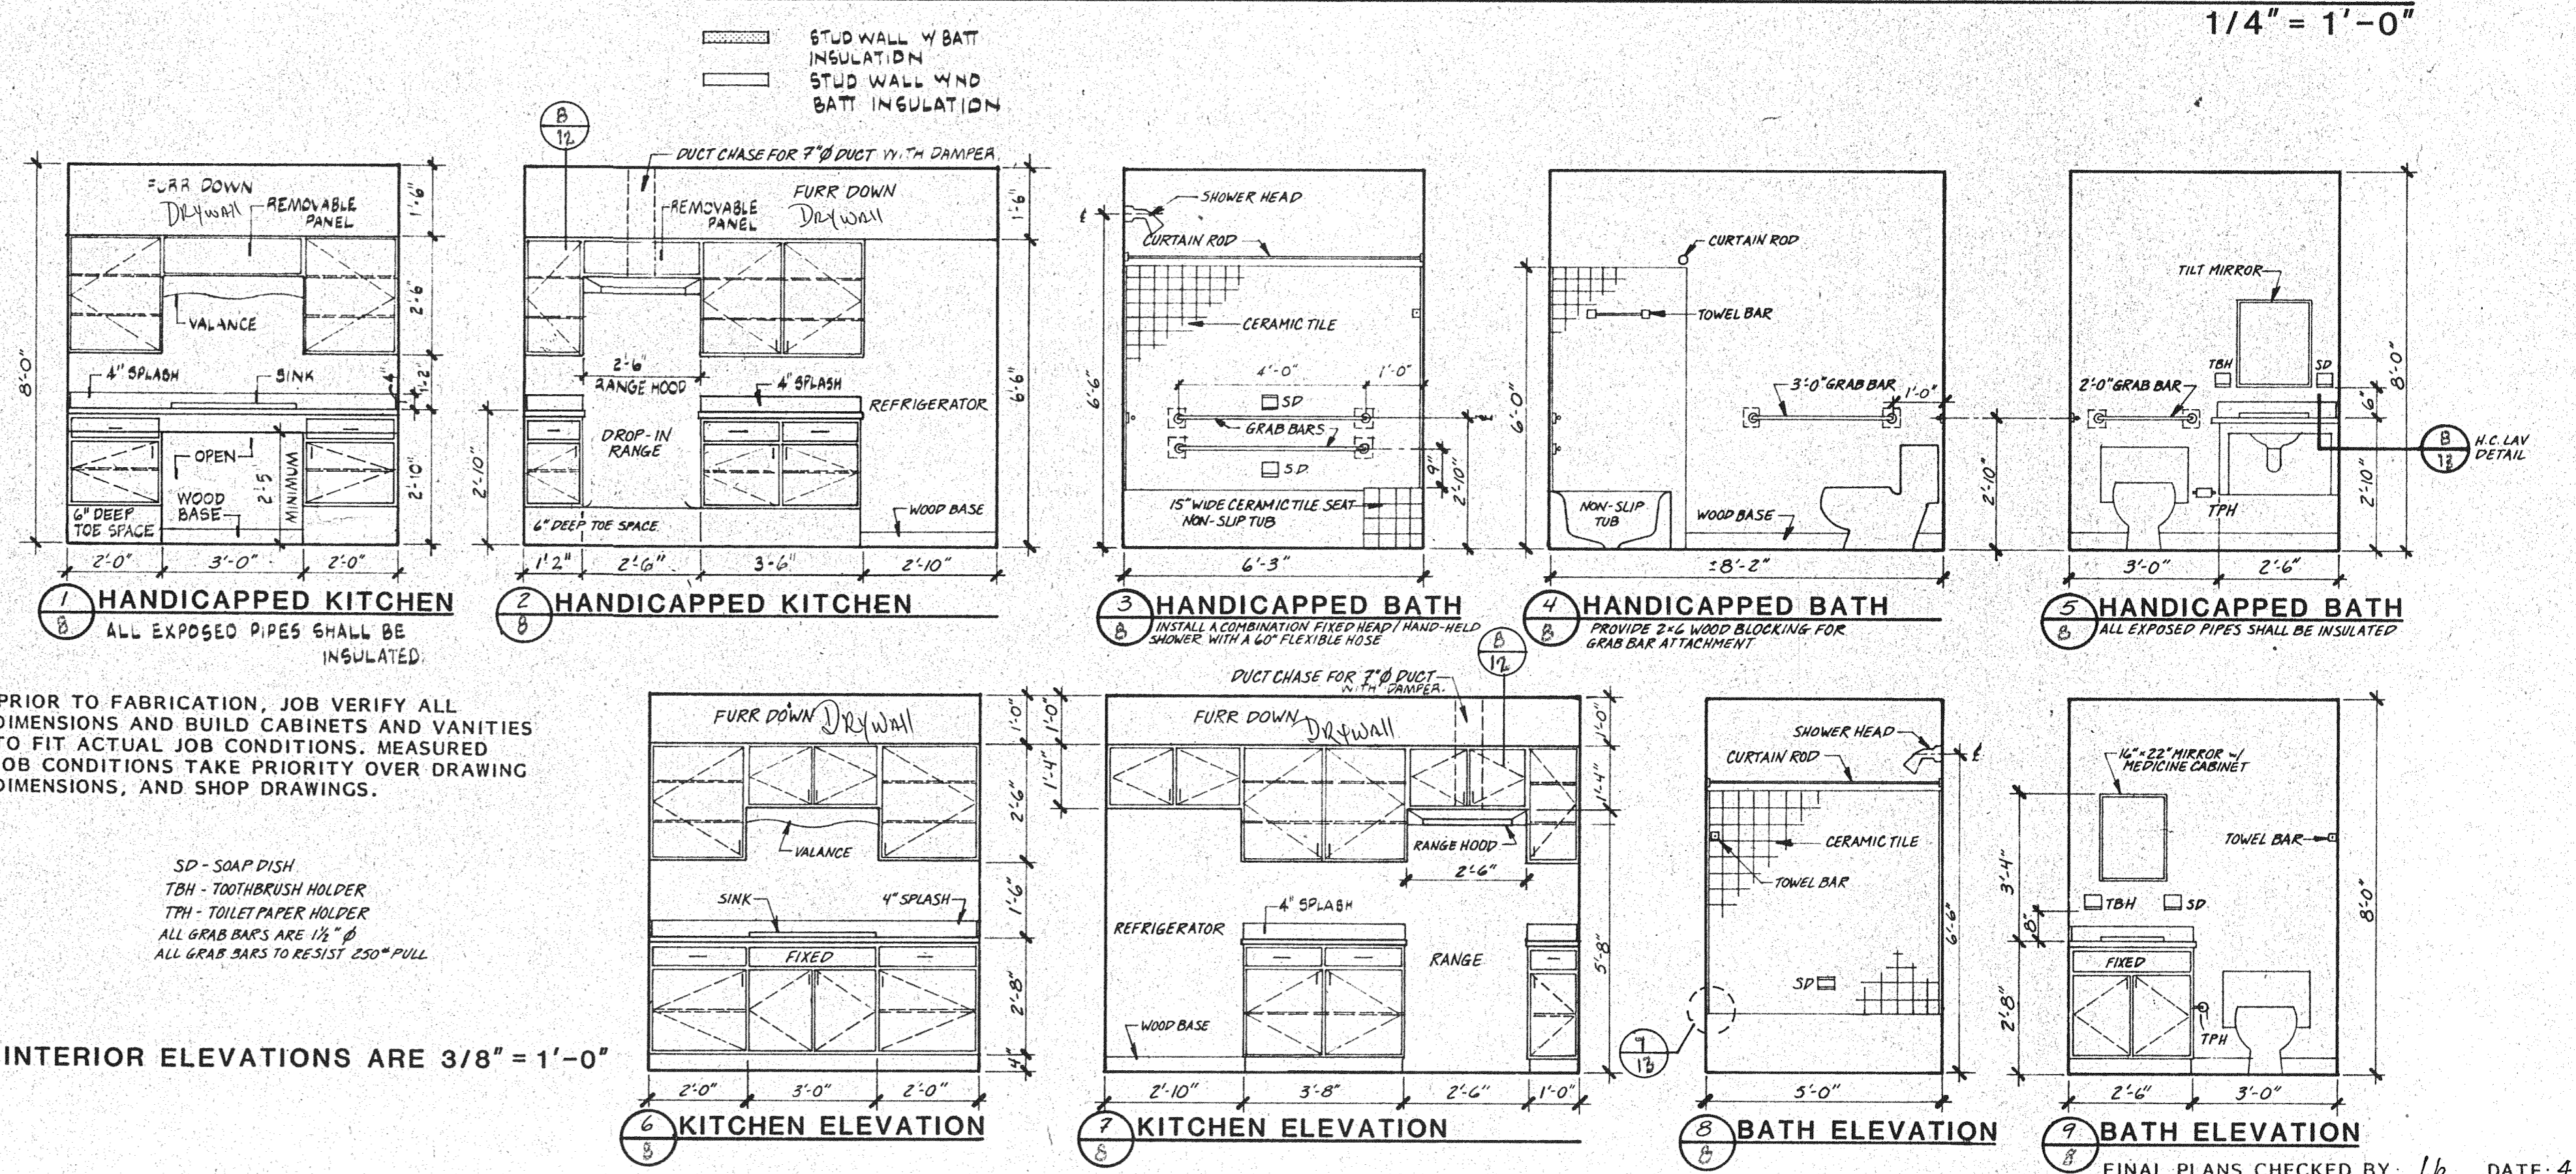 1/4" = 1'-0"
STUD WALL W/ BATT
INSULATION
STUD WALL W/NO
BATT INSULATION
B
12
DUCT CHASE FOR 7"Ø DUCT WITH DAMPER
FURR DOWN
DRYWALL
REMOVABLE
PANEL
VALANCE
4" SPLASH
SINK
OPEN
WOOD
BASE
6" DEEP
TOE SPACE
2'-5"
MINIMUM
8'-0"
1'-6"
2'-6"
4"
1'-2"
2'-10"
2'-0"
3'-0"
2'-0"
1
8
HANDICAPPED KITCHEN
ALL EXPOSED PIPES SHALL BE
INSULATED.
REMOVABLE
PANEL
FURR DOWN
DRYWALL
2'-6"
RANGE HOOD
4" SPLASH
REFRIGERATOR
DROP-IN
RANGE
6" DEEP TOE SPACE
WOOD BASE
2'-10"
1'-6"
6'-6"
1'2"
2'-6"
3'-6"
2'-10"
2
8
HANDICAPPED KITCHEN
SHOWER HEAD
CURTAIN ROD
CERAMIC TILE
4'-0"
1'-0"
SD
GRAB BARS
S.D.
15" WIDE CERAMIC TILE SEAT
NON-SLIP TUB
6'-6"
9"
2'-10"
6'-3"
3
8
HANDICAPPED BATH
INSTALL A COMBINATION FIXED HEAD / HAND-HELD
SHOWER WITH A 60" FLEXIBLE HOSE
CURTAIN ROD
TOWEL BAR
3'-0" GRAB BAR
1'-0"
NON-SLIP
TUB
WOOD BASE
6'-0"
2'-10"
±8'-2"
4
8
HANDICAPPED BATH
PROVIDE 2×6 WOOD BLOCKING FOR
GRAB BAR ATTACHMENT
TILT MIRROR
TBH
SD
2'-0" GRAB BAR
TPH
6"
8'-0"
2'-10"
B
13
H.C. LAV
DETAIL
3'-0"
2'-6"
5
8
HANDICAPPED BATH
ALL EXPOSED PIPES SHALL BE INSULATED
PRIOR TO FABRICATION, JOB VERIFY ALL
DIMENSIONS AND BUILD CABINETS AND VANITIES
TO FIT ACTUAL JOB CONDITIONS. MEASURED
JOB CONDITIONS TAKE PRIORITY OVER DRAWING
DIMENSIONS, AND SHOP DRAWINGS.
SD - SOAP DISH
TBH - TOOTHBRUSH HOLDER
TPH - TOILET PAPER HOLDER
ALL GRAB BARS ARE 1½" Ø
ALL GRAB BARS TO RESIST 250# PULL
INTERIOR ELEVATIONS ARE 3/8" = 1'-0"
FURR DOWN DRYWALL
VALANCE
SINK
4" SPLASH
FIXED
1'-0"
2'-6"
1'-6"
2'-8"
4"
2'-0"
3'-0"
2'-0"
6
8
KITCHEN ELEVATION
DUCT CHASE FOR 7"Ø DUCT
WITH DAMPER.
B
12
FURR DOWN
DRYWALL
1'-0"
1'-4"
RANGE HOOD
2'-6"
4" SPLASH
REFRIGERATOR
RANGE
WOOD BASE
1'-0"
1'-4"
5'-8"
2'-10"
3'-8"
2'-6"
1'-0"
7
8
KITCHEN ELEVATION
SHOWER HEAD
CURTAIN ROD
CERAMIC TILE
TOWEL BAR
SD
6'-6"
13
5'-0"
8
8
BATH ELEVATION
16"×22" MIRROR W/
MEDICINE CABINET
TOWEL BAR
TBH
SD
FIXED
TPH
3'-4"
8"
2'-8"
8'-0"
2'-6"
3'-0"
9
8
BATH ELEVATION
FINAL PLANS CHECKED BY: DATE: 4